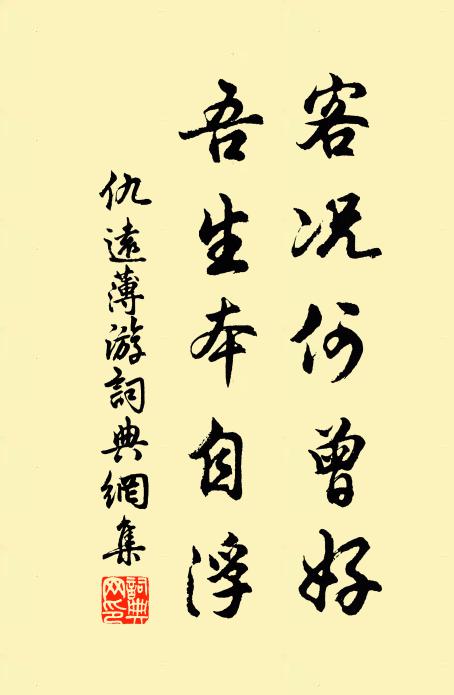 客况何曾好
吾生本自浮
仇遠薄游詞典網集
詞典网印